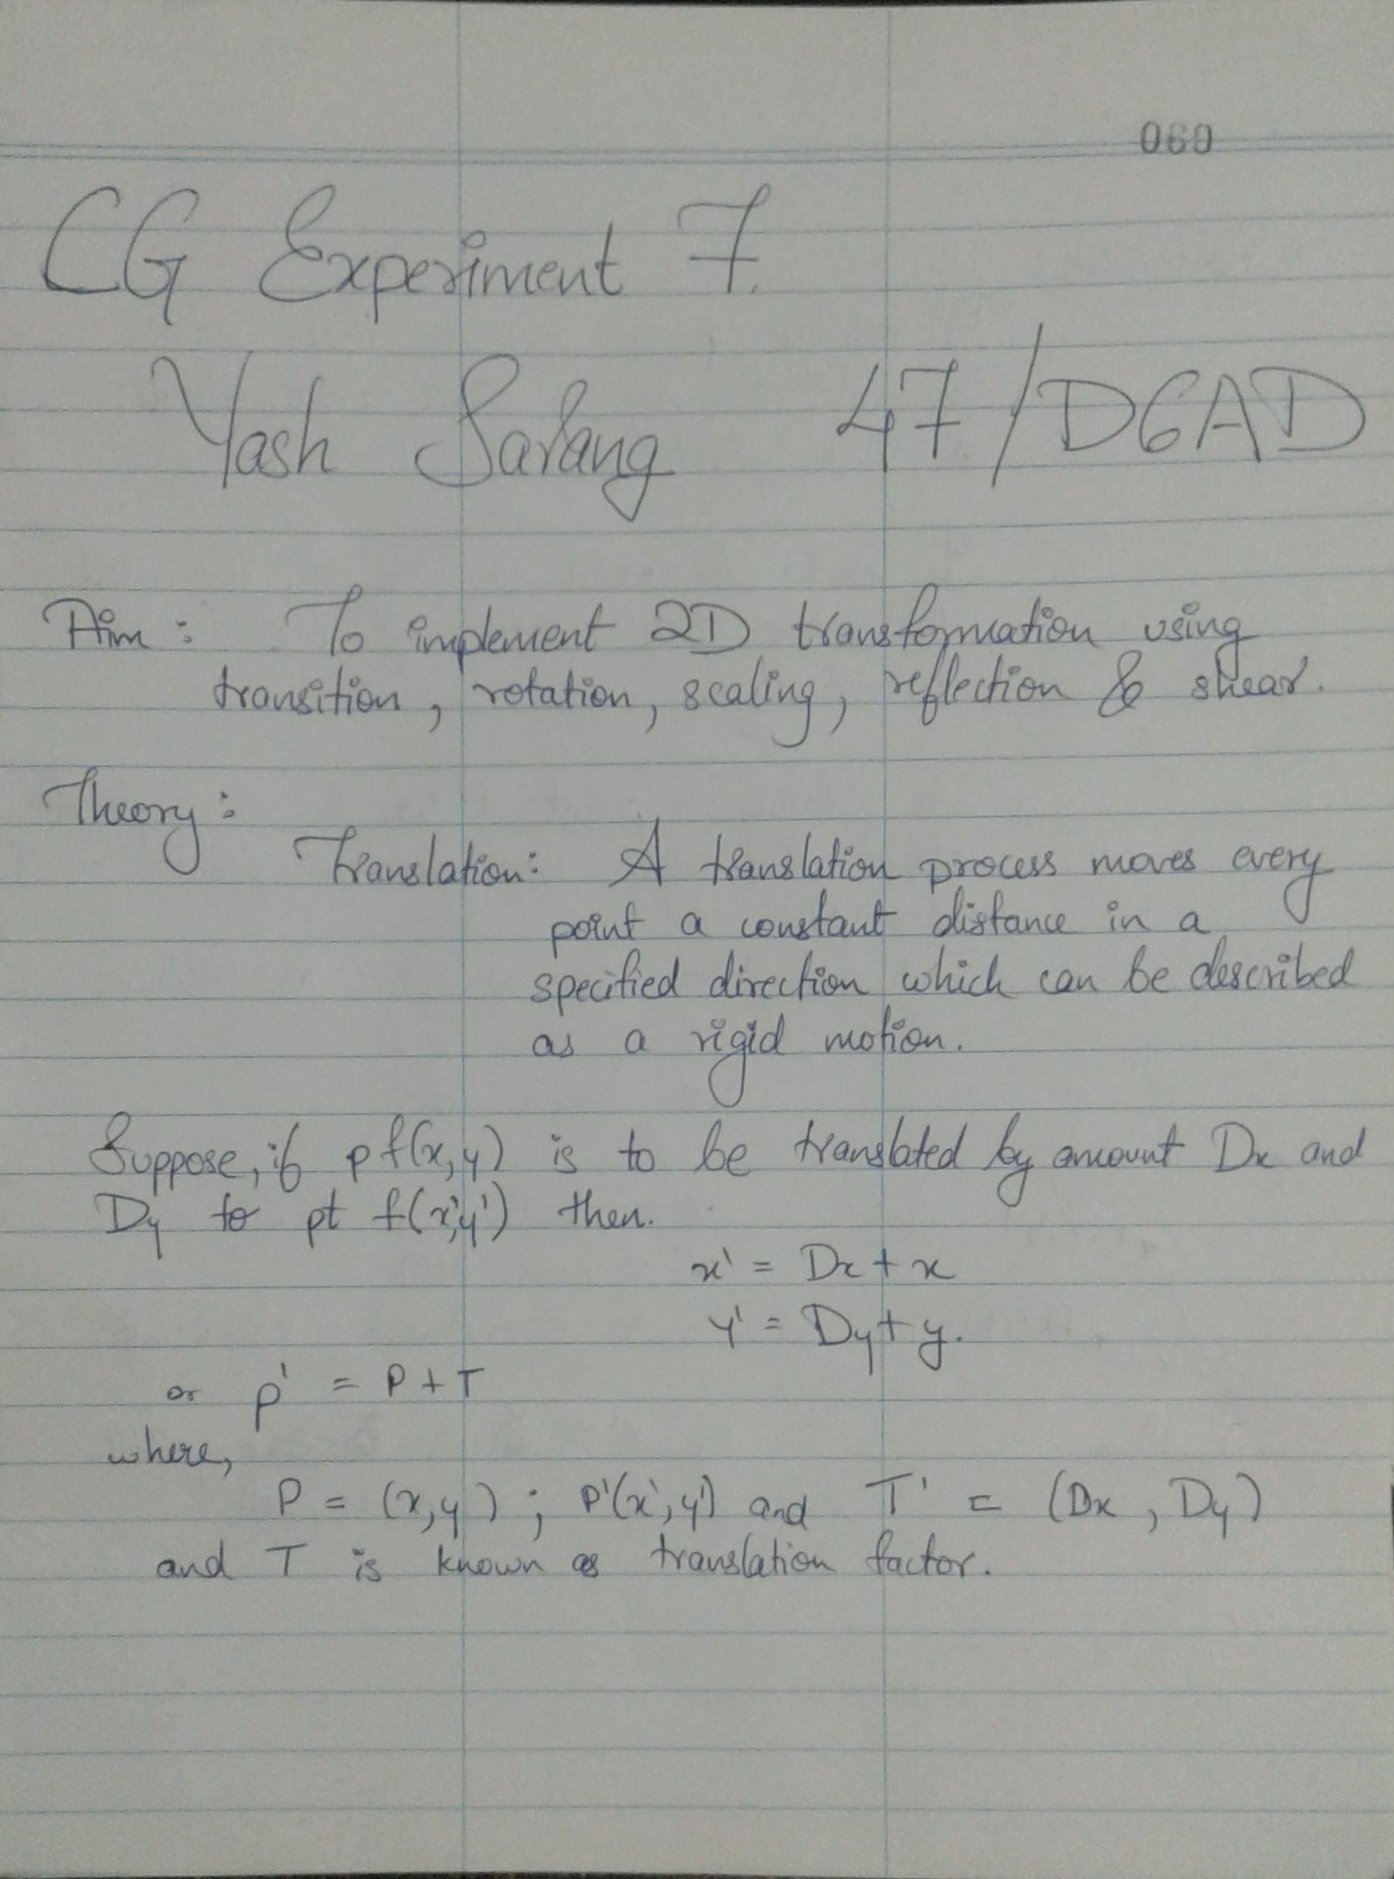 060
CG Experiment 7.
Yash Sarang 47/D6AD
Aim : To implement 2D transformation using
transition, rotation, scaling, reflection & shear.
Theory :
Translation: A translation process moves every
point a constant distance in a
specified direction which can be described
as a rigid motion.
Suppose, if p f(x,y) is to be translated by amount Dx and
Dy to pt f(x',y') then.
x' = Dx + x
y' = Dy + y.
or p' = P + T
where,
P = (x,y) ; P'(x',y') and T' = (Dx , Dy)
and T is known as translation factor.